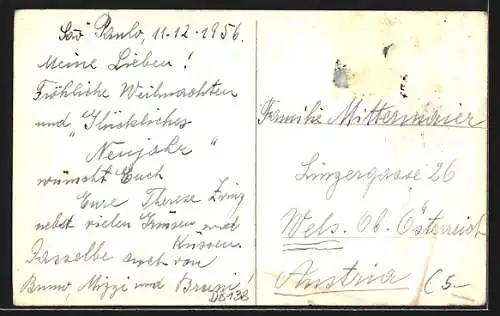 São Paulo, 11-12-1956.
Meine Lieben!
Fröhliche Weihnachten
und "Glückliches
Neujahr"
wünscht Euch
Eure Therese
nebst vielen Grüssen und
Küssen.
Dasselbe auch von
Bruno, Mizzi und
DB138
Familie Mittermaier
Linzergasse 26
Wels. Ob. Österreich
Austria